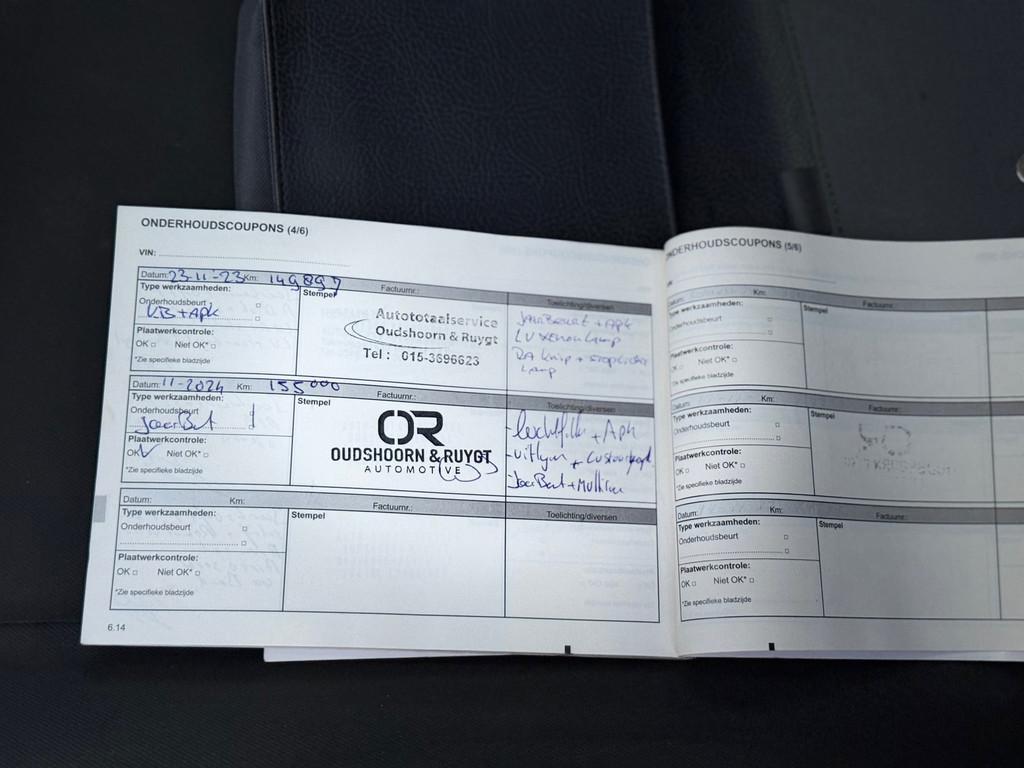 ONDERHOUDSCOUPONS (4/6)
VIN:
Datum: 23-11-23 Km: 149897 Factuurnr.:
Type werkzaamheden: Stempel Toelichting/diversen
Onderhoudsbeurt
+ APK
Plaatwerkcontrole:
OK Niet OK*
*Zie specifieke bladzijde
Autototaalservice
Oudshoorn & Ruygt
Tel : 015-3696623
Jaarbeurt + APK
lamp
Datum: 11-2024 Km: 155000 Factuurnr.:
Type werkzaamheden: Stempel Toelichting/diversen
Onderhoudsbeurt
Plaatwerkcontrole:
OK Niet OK*
*Zie specifieke bladzijde
OR
OUDSHOORN & RUYGT
AUTOMOTIVE
+ Apk
Datum: Km: Factuurnr.:
Type werkzaamheden: Stempel Toelichting/diversen
Onderhoudsbeurt
Plaatwerkcontrole:
OK Niet OK*
*Zie specifieke bladzijde
6.14
ONDERHOUDSCOUPONS (5/6)
Datum: Km: Factuurnr.:
Type werkzaamheden: Stempel
Onderhoudsbeurt
Plaatwerkcontrole:
OK Niet OK*
*Zie specifieke bladzijde
Datum: Km: Factuurnr.:
Type werkzaamheden: Stempel
Onderhoudsbeurt
Plaatwerkcontrole:
OK Niet OK*
*Zie specifieke bladzijde
Datum: Km: Factuurnr.:
Type werkzaamheden: Stempel
Onderhoudsbeurt
Plaatwerkcontrole:
OK Niet OK*
*Zie specifieke bladzijde